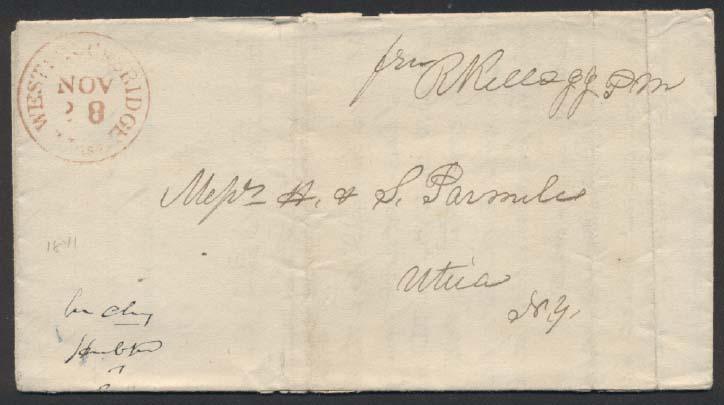 WEST BRIDGE
NOV
28
free R Kellogg P M
Messrs A. & S. Parmele
Utica
N.Y.
1841